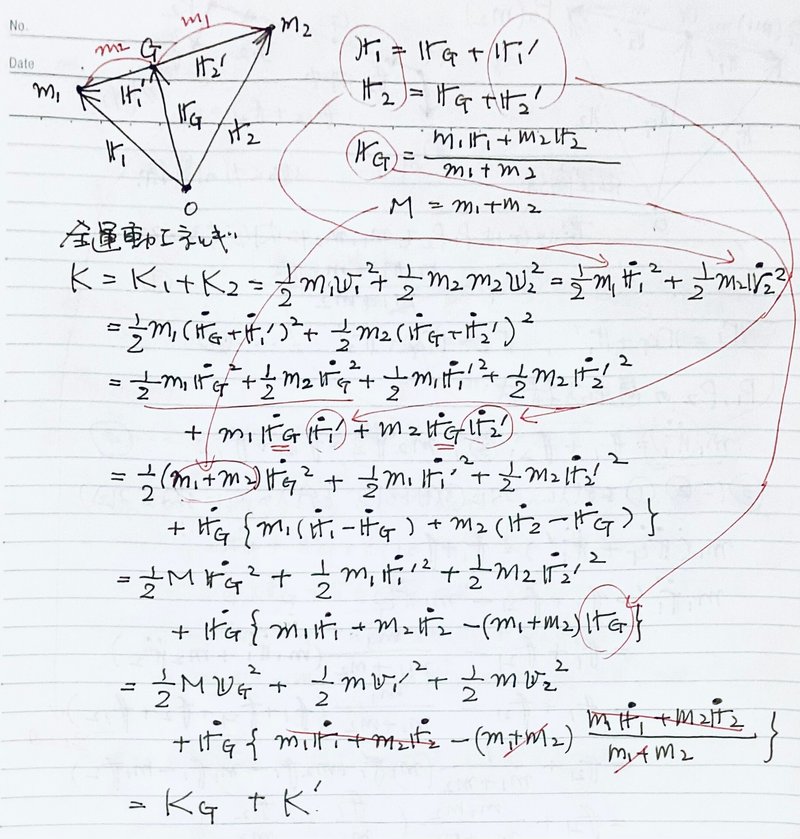 No.
Date
m₂ G m₁ m₂
m₁ 𝕣₁′ 𝕣₂′
𝕣₁ 𝕣G 𝕣₂
O
𝕣₁ = 𝕣G + 𝕣₁′
𝕣₂ = 𝕣G + 𝕣₂′
𝕣G = (m₁𝕣₁ + m₂𝕣₂)/(m₁ + m₂)
M = m₁ + m₂
全運動エネルギ
K = K₁ + K₂ = ½ m₁𝕧₁² + ½ m₂ m₂ 𝕧₂² = ½ m₁ 𝕣̇₁² + ½ m₂ 𝕣̇₂²
= ½ m₁ (𝕣̇G + 𝕣̇₁′)² + ½ m₂ (𝕣̇G + 𝕣̇₂′)²
= ½ m₁ 𝕣̇G² + ½ m₂ 𝕣̇G² + ½ m₁ 𝕣̇₁′² + ½ m₂ 𝕣̇₂′²
+ m₁ 𝕣̇G 𝕣̇₁′ + m₂ 𝕣̇G 𝕣̇₂′
= ½ (m₁ + m₂) 𝕣̇G² + ½ m₁ 𝕣̇₁′² + ½ m₂ 𝕣̇₂′²
+ 𝕣̇G { m₁ (𝕣̇₁ - 𝕣̇G) + m₂ (𝕣̇₂ - 𝕣̇G) }
= ½ M 𝕣̇G² + ½ m₁ 𝕣̇₁′² + ½ m₂ 𝕣̇₂′²
+ 𝕣̇G { m₁ 𝕣̇₁ + m₂ 𝕣̇₂ - (m₁ + m₂) 𝕣̇G }
= ½ M 𝕧G² + ½ m 𝕧₁′² + ½ m 𝕧₂²
+ 𝕣̇G { m₁ 𝕣̇₁ + m₂ 𝕣̇₂ - (m₁ + m₂) (m₁ 𝕣̇₁ + m₂ 𝕣̇₂)/(m₁ + m₂) }
= KG + K′